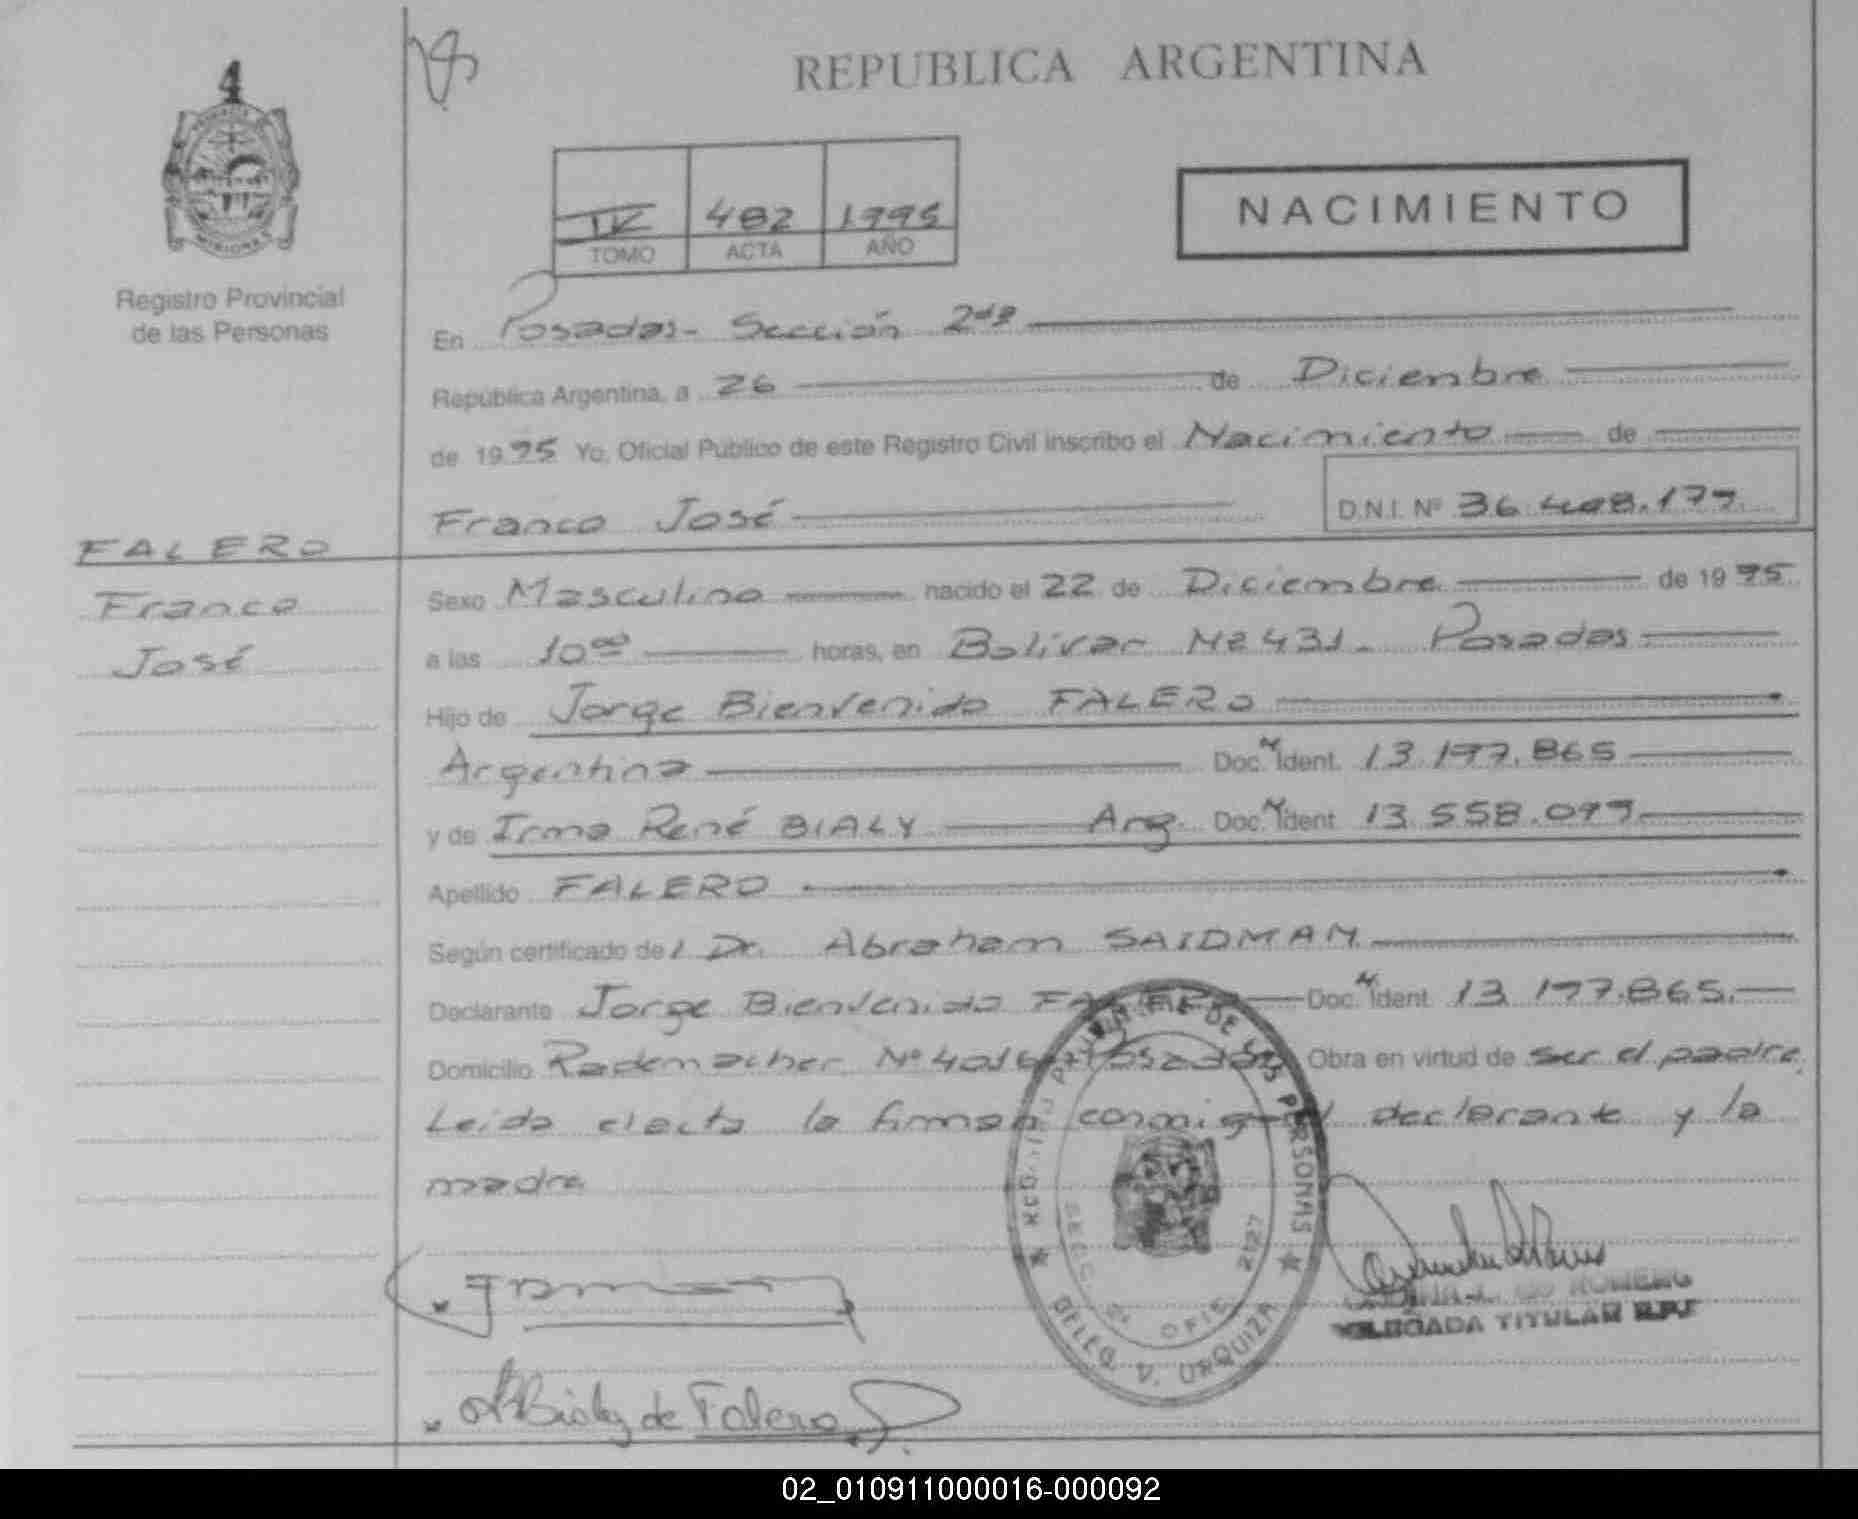 4
REPUBLICA ARGENTINA
MISIONES
Registro Provincial
de las Personas
IV 482 1995
TOMO ACTA AÑO
NACIMIENTO
En Posadas- Sección 2da
República Argentina, a 26 de Diciembre
de 1995 Yo, Oficial Público de este Registro Civil inscribo el Nacimiento de
Franco José D.N.I. Nº 36.408.177
FALERO
Franco
José
Sexo Masculino nacido el 22 de Diciembre de 1995
a las 1000 horas, en Bolívar Nº 431- Posadas
Hijo de Jorge Bienvenido FALERO
Argentina Doc. N Ident. 13.197.865
y de Irma René BIALY Arg. Doc. N Ident. 13.558.099
Apellido FALERO
Según certificado del Dr. Abraham SAIDMAN
Declarante Jorge Bienvenido FALERO Doc. N Ident. 13.197.865.
Domicilio Rademacher Nº 4016 Posadas Obra en virtud de ser el padre,
Leida el acta la firman conmigo el declarante y la
madre
DE LAS PERSONAS
SECC. 2a OFIC. 2127
DELEG. V. URQUIZA
DE ROMERO
DELEGADA TITULAR R.P.P
Bialy de Falero
02_010911000016-000092